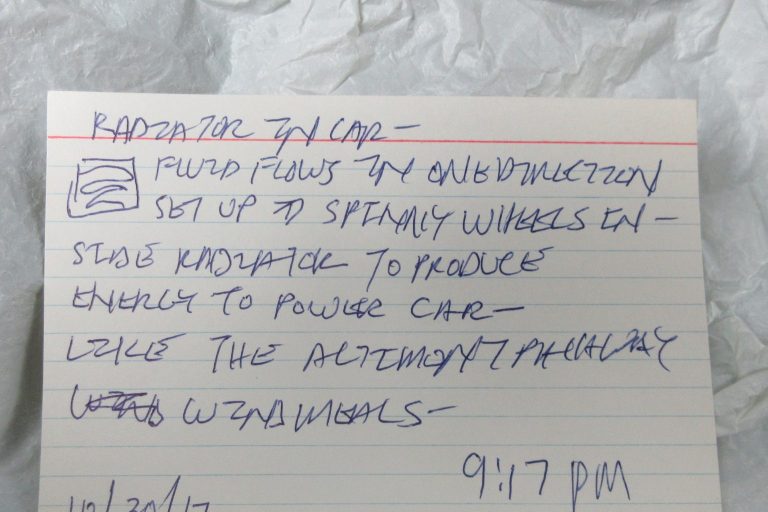 RADIATOR IN CAR—
FLUID FLOWS IN ONE DIRECTION
SET UP SPINNY WHEELS IN—
SIDE RADIATOR TO PRODUCE
ENERGY TO POWER CAR—
LIKE THE ALTIMONT
WINDMEALS—
9:17 PM